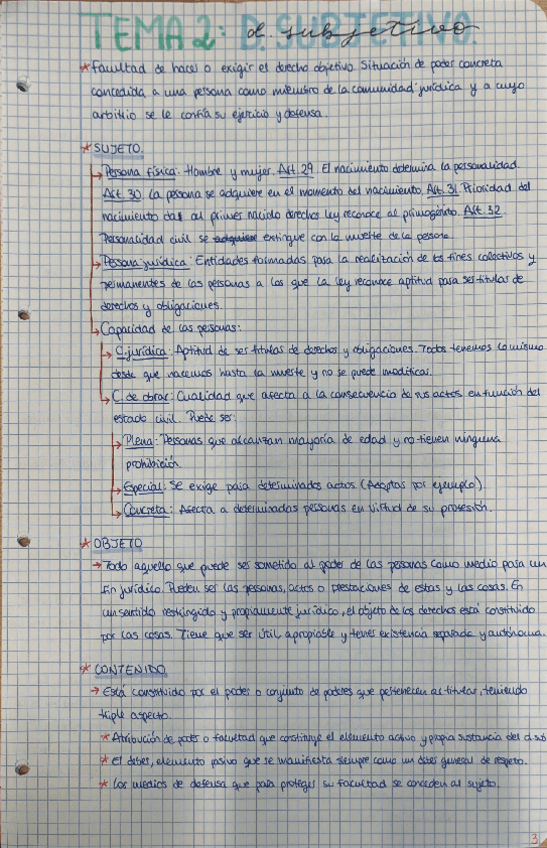 TEMA 2: D. SUBJETIVO.
d. subjetivo
* Facultad de hacer o exigir el derecho objetivo. Situación de poder concreta
concedida a una persona como miembro de la comunidad jurídica y a cuyo
arbitrio se le confía su ejercicio y defensa.
* SUJETO.
→ Persona física: Hombre y mujer. Art. 29. El nacimiento determina la personalidad.
Art. 30 La persona se adquiere en el momento del nacimiento. Art. 31 Prioridad del
nacimiento da al primer nacido derechos ley reconoce al primogénito. Art. 32
Personalidad civil se adquiere extingue con la muerte de la persona.
→ Persona jurídica: Entidades formadas para la realización de los fines colectivos y
permanentes de las personas a los que la ley reconoce aptitud para ser titular de
derechos y obligaciones.
→ Capacidad de las personas:
→ C. jurídica: Aptitud de ser titular de derechos y obligaciones. Todos tenemos la misma
desde que nacemos hasta la muerte y no se puede modificar.
→ C. de obrar: Cualidad que afecta a la consecuencia de sus actos en función del
estado civil. Puede ser:
→ Plena: Personas que alcanzan mayoría de edad y no tienen ninguna
prohibición.
→ Especial: Se exige para determinados actos. (Adoptar por ejemplo).
→ Concreta: Afecta a determinadas personas en virtud de su profesión.
* OBJETO
→ Todo aquello que puede ser sometido al poder de las personas como medio para un
fin jurídico. Pueden ser las personas, actos o prestaciones de estas y las cosas. En
un sentido restringido y propiamente jurídico, el objeto de los derechos está constituido
por las cosas. Tiene que ser útil, apropiable y tener existencia separada y autónoma.
* CONTENIDO
→ Está constituido por el poder o conjunto de poderes que pertenecen al titular, teniendo
triple aspecto.
* Atribución de poder o facultad que constituye el elemento activo y propia sustancia del d.sub
* El deber, elemento pasivo que se manifiesta siempre como un deber general de respeto.
* Los medios de defensa que para proteger su facultad se conceden al sujeto.
3